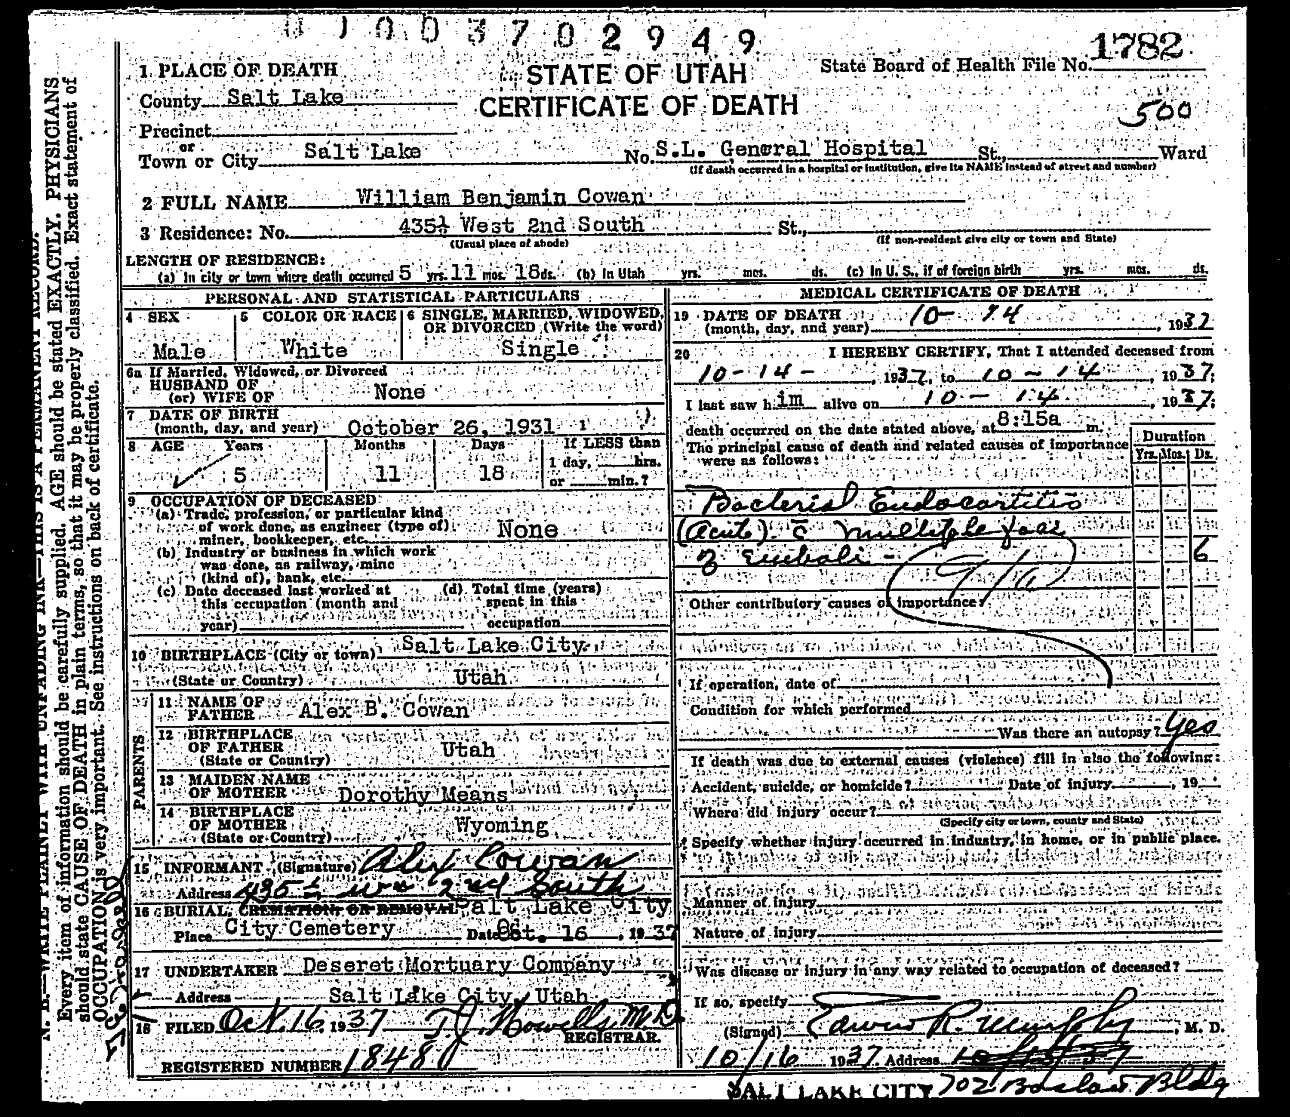 0 1 0 0 3 7 0 2 9 4 9
1782
State Board of Health File No.
STATE OF UTAH
CERTIFICATE OF DEATH
500
1 PLACE OF DEATH
County Salt Lake
Precinct
or
Town or City Salt Lake No. S.L. General Hospital St., Ward
(If death occurred in a hospital or institution, give its NAME instead of street and number)
2 FULL NAME William Benjamin Cowan
3 Residence: No. 435½ West 2nd South St.,
(Usual place of abode) (If non-resident give city or town and State)
LENGTH OF RESIDENCE:
(a) In city or town where death occurred 5 yrs. 11 mos. 18 ds. (b) In Utah yrs. mos. ds. (c) In U. S., if of foreign birth yrs. mos. ds.
PERSONAL AND STATISTICAL PARTICULARS
4 SEX Male
5 COLOR OR RACE White
6 SINGLE, MARRIED, WIDOWED, OR DIVORCED (Write the word)
Single
6a If Married, Widowed, or Divorced
HUSBAND OF
(or) WIFE OF None
7 DATE OF BIRTH
(month, day, and year) October 26, 1931
8 AGE Years Months Days If LESS than
5 11 18 1 day, hrs.
or min.?
9 OCCUPATION OF DECEASED
(a) Trade, profession, or particular kind
of work done, as engineer (type of)
miner, bookkeeper, etc. None
(b) Industry or business in which work
was done, as railway, mine
(kind of), bank, etc.
(c) Date deceased last worked at
this occupation (month and
year)
(d) Total time (years)
spent in this
occupation
10 BIRTHPLACE (City or town) Salt Lake City
(State or Country) Utah
PARENTS
11 NAME OF
FATHER Alex B. Cowan
12 BIRTHPLACE
OF FATHER Utah
(State or Country)
13 MAIDEN NAME
OF MOTHER Dorothy Means
14 BIRTHPLACE
OF MOTHER Wyoming
(State or Country)
15 INFORMANT (Signature) Alex Cowan
Address 435½ W 2nd South
16 BURIAL, CREMATION, OR REMOVAL Salt Lake City
Place City Cemetery Date Oct. 16, 1937
17 UNDERTAKER Deseret Mortuary Company
Address Salt Lake City, Utah
18 FILED Oct. 16 1937 T.J. Howells M.D.
REGISTRAR.
REGISTERED NUMBER 1848
MEDICAL CERTIFICATE OF DEATH
19 DATE OF DEATH
(month, day, and year) 10-14, 1937
20 I HEREBY CERTIFY, That I attended deceased from
10-14-, 1937, to 10-14, 1937;
I last saw him alive on 10-14, 1937;
death occurred on the date stated above, at 8:15a m.
The principal cause of death and related causes of importance
were as follows:
Duration
Yrs. Mos. Ds.
Bacterial Endocartitis
(Acute) c̄ multiple foci
of Emboli - 6
Other contributory causes of importance?
If operation, date of
Condition for which performed
Was there an autopsy? Yes
If death was due to external causes (violence) fill in also the following:
Accident, suicide, or homicide? Date of injury , 19
Where did injury occur?
(Specify city or town, county and State)
Specify whether injury occurred in industry, in home, or in public place.
Manner of injury
Nature of injury
Was disease or injury in any way related to occupation of deceased?
If so, specify
(Signed) Edwin R. Murphy, M. D.
10/16 1937 Address 10/15/37
SALT LAKE CITY 702 Boston Bldg
N. B.—WRITE PLAINLY WITH UNFADING INK—THIS IS A PERMANENT RECORD.
Every item of information should be carefully supplied. AGE should be stated EXACTLY. PHYSICIANS
should state CAUSE OF DEATH in plain terms, so that it may be properly classified. Exact statement of
OCCUPATION is very important. See instructions on back of certificate.